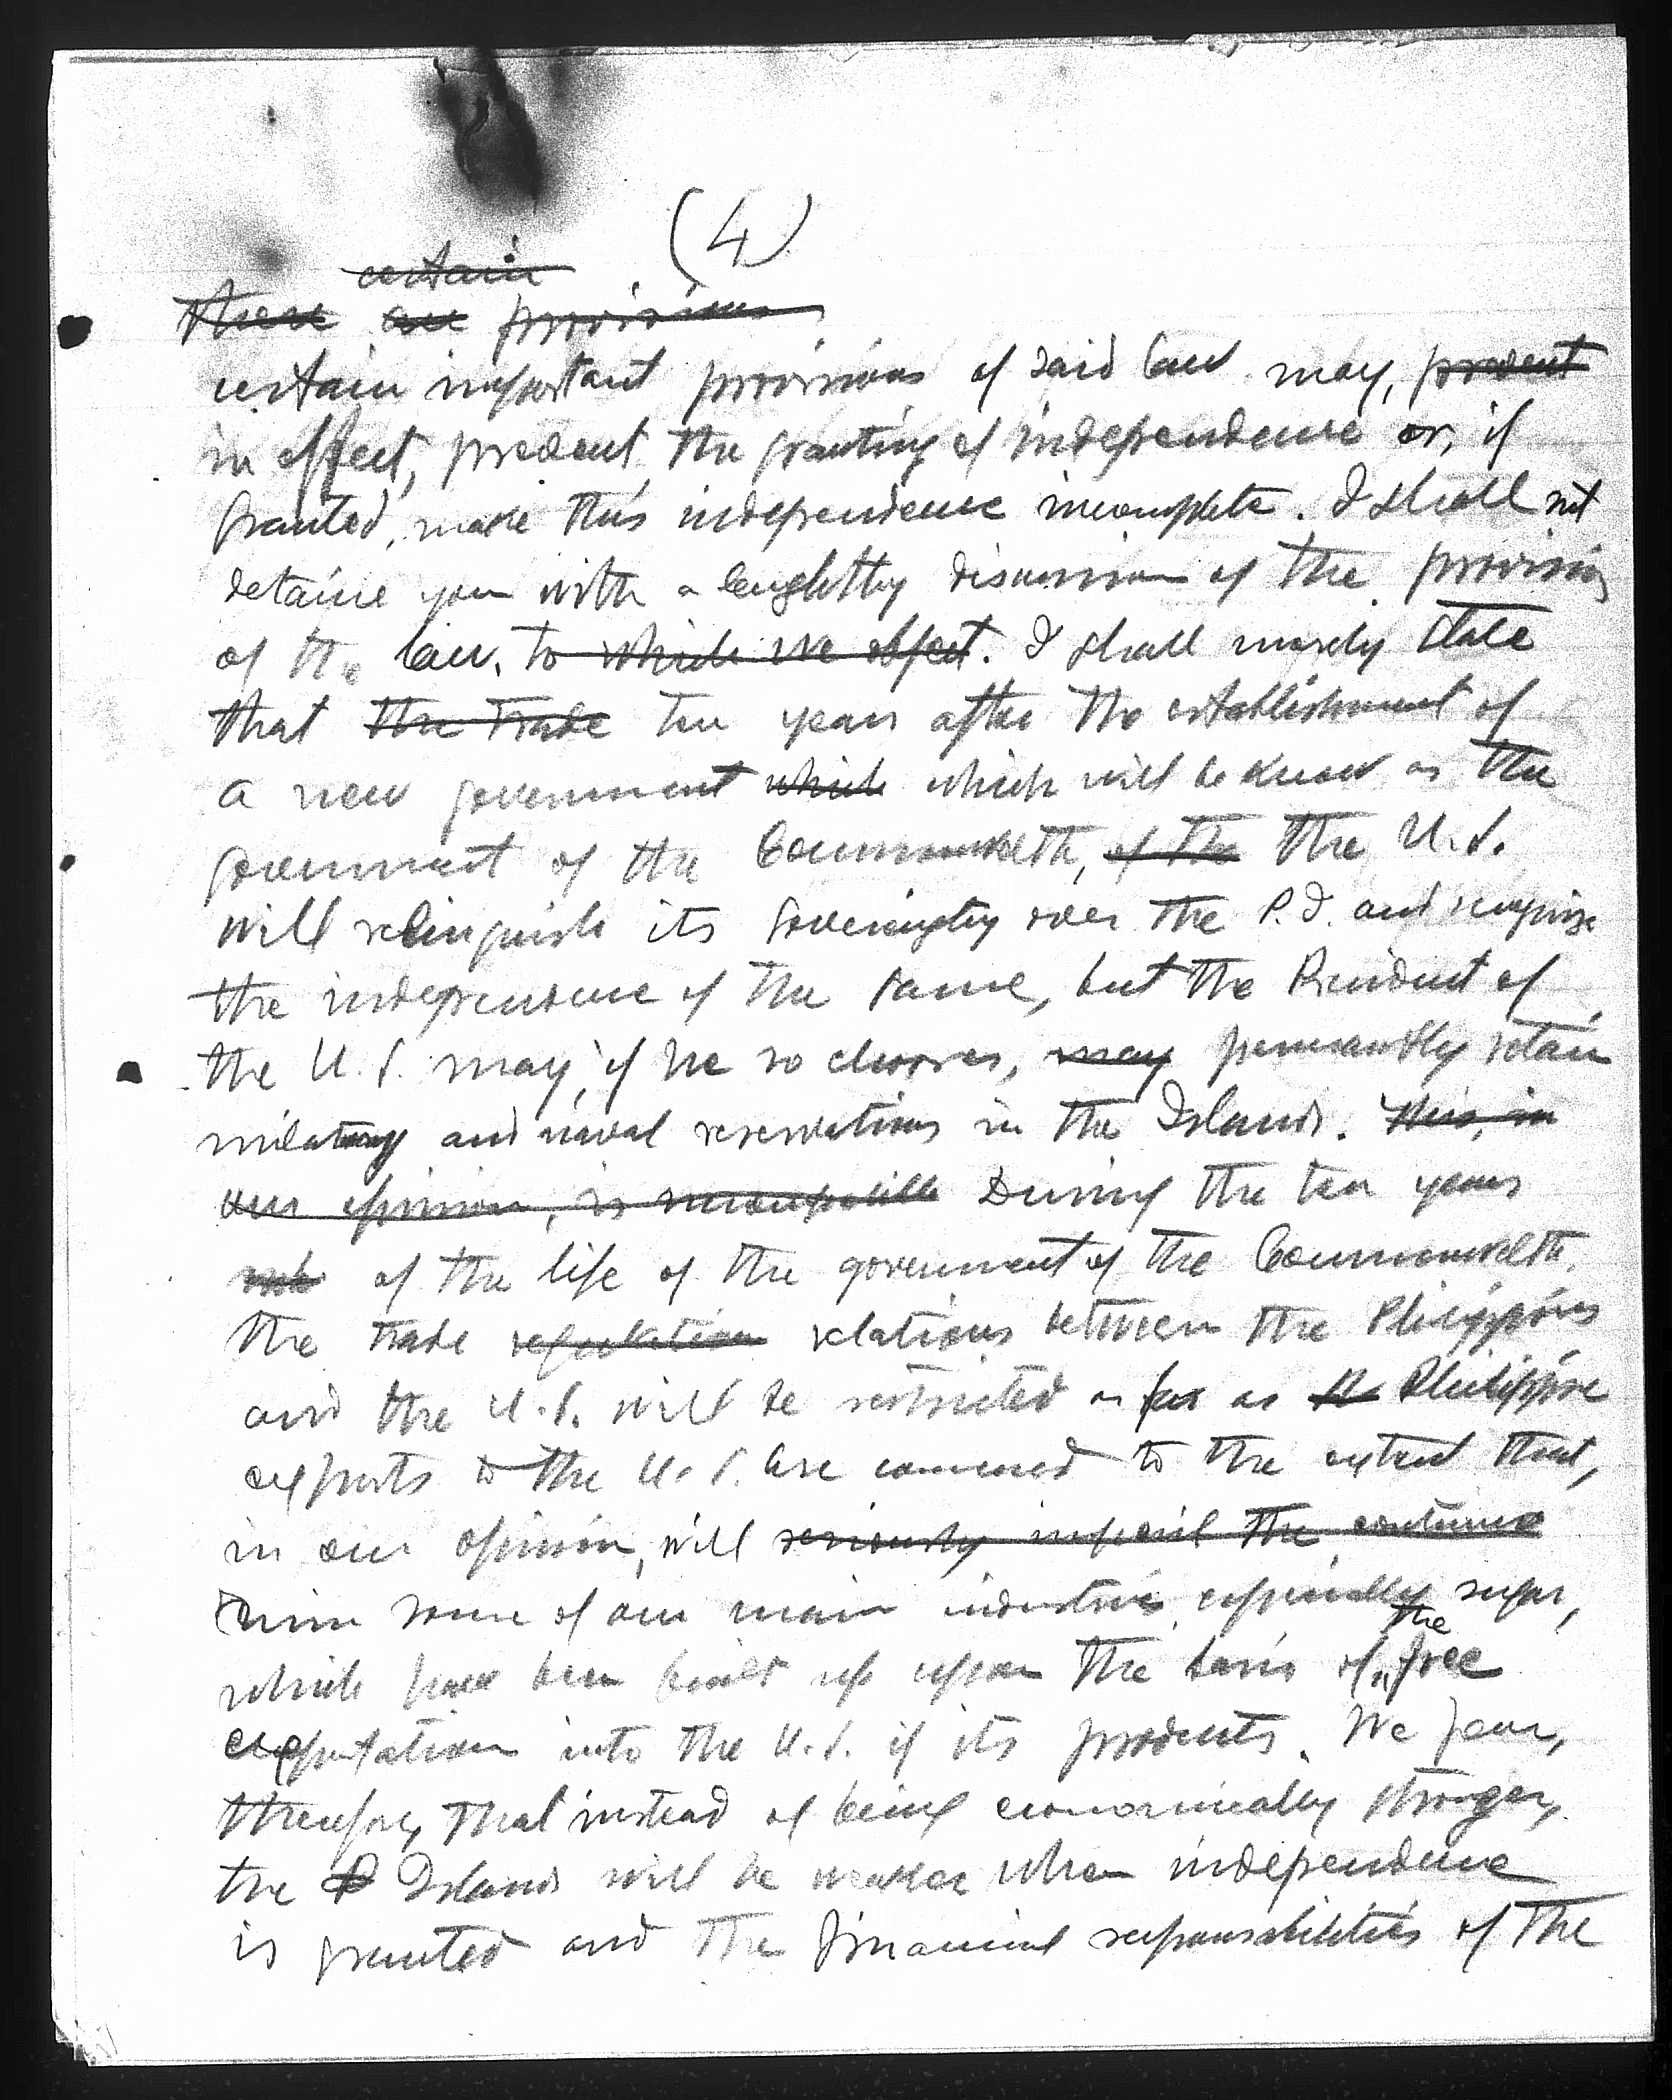 (4)
certain
these are provisions
certain important provisions of said law may, prevent
in effect, prevent the granting of independence or, if
granted, make this independence incomplete. I shall not
detaine you with a lenghtty discussion of the provisions
of the law. to which we object. I shall merely state
that the trade ten years after the establishment of
a new government which which will be know as the
government of the Commonwelth, of the the U.S.
will relinquish its sovereingty over the P.I. and recognize
the independence of the same, but the President of
the U.S. may, if he so chooses, may permanently retain
military and naval reservations in the Islands. This, in
our opinion, is incompatible During the ten years
of the life of the government of the Commonwelth,
the trade regulation relations between the Philippines
and the U.S. will be restricted as far as Philippine
exports to the U.S. are concerned to the extent that,
in our opinion, will seriously imperil the continua
ruin some of our main industries especially sugar,
the
which have been build up upon the basis of free
exportation into the U.S. of its products. We fear,
therefore, that instead of being economically stronger,
the P Islands will be weaker when independence
is granted and the financial responsabilities of the